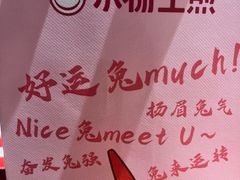 小杨生煎
好运兔much!
扬眉兔气
Nice兔meet U~
奋发兔强
兔来运转